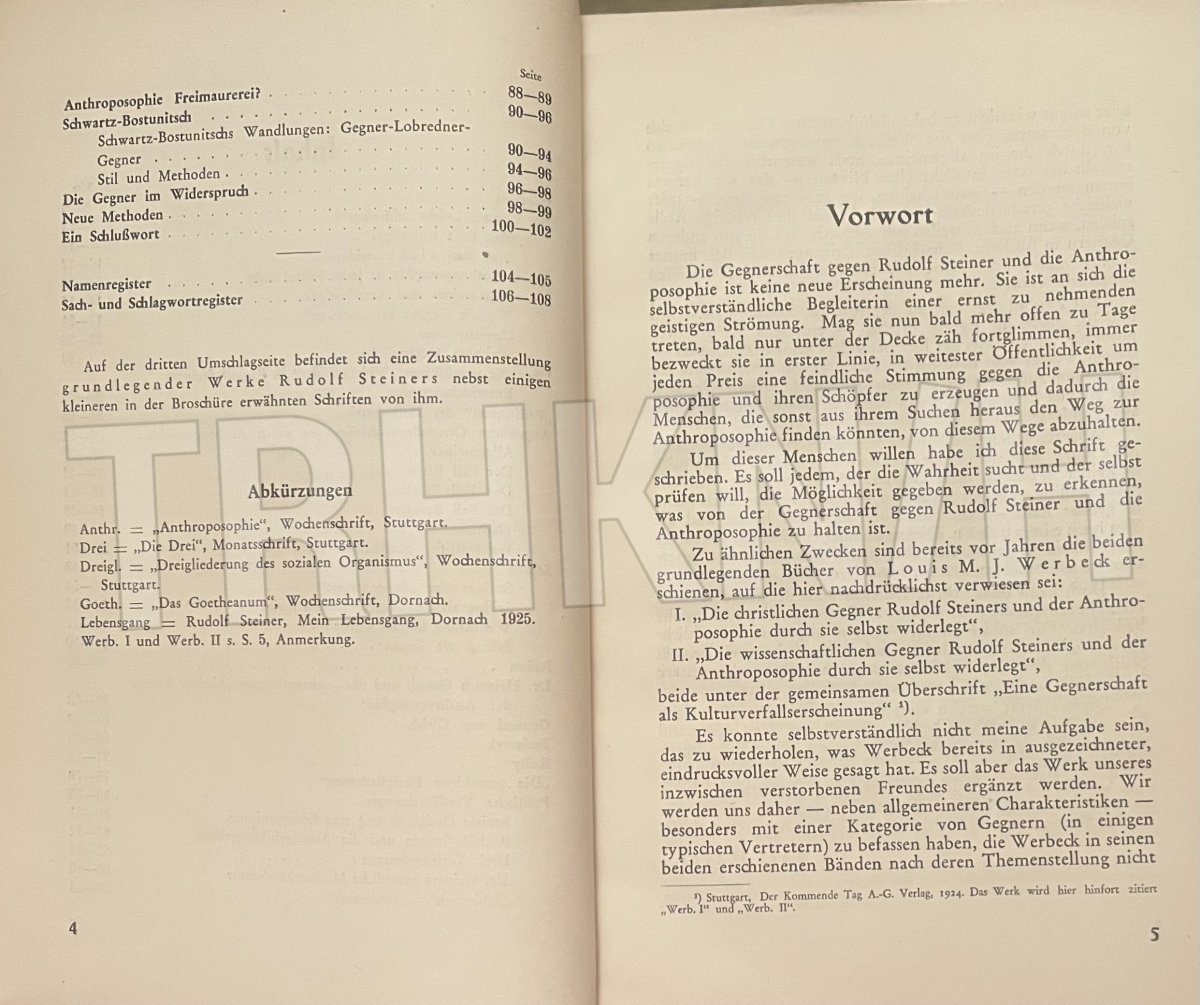 Seite
Anthroposophie Freimaurerei? . . . . . . . . . . . 88—89
Schwartz-Bostunitsch . . . . . . . . . . . 90—96
Schwartz-Bostunitschs Wandlungen: Gegner-Lobredner-
Gegner . . . . . . . . . . . . . . . 90—94
Stil und Methoden . . . . . . . . . . . . 94—96
Die Gegner im Widerspruch . . . . . . . . . . . 96—98
Neue Methoden . . . . . . . . . . . . . . 98—99
Ein Schlußwort . . . . . . . . . . . . . . 100—102
Namenregister . . . . . . . . . . . . . . 104—105
Sach- und Schlagwortregister . . . . . . . . . . . 106—108
Auf der dritten Umschlagseite befindet sich eine Zusammenstellung
grundlegender Werke Rudolf Steiners nebst einigen
kleineren in der Broschüre erwähnten Schriften von ihm.
Abkürzungen
Anthr. = „Anthroposophie“, Wochenschrift, Stuttgart.
Drei = „Die Drei“, Monatsschrift, Stuttgart.
Dreigl. = „Dreigliederung des sozialen Organismus“, Wochenschrift,
Stuttgart.
Goeth. = „Das Goetheanum“, Wochenschrift, Dornach.
Lebensgang = Rudolf Steiner, Mein Lebensgang, Dornach 1925.
Werb. I und Werb. II s. S. 5, Anmerkung.
4
Vorwort
Die Gegnerschaft gegen Rudolf Steiner und die Anthro-
posophie ist keine neue Erscheinung mehr. Sie ist an sich die
selbstverständliche Begleiterin einer ernst zu nehmenden
geistigen Strömung. Mag sie nun bald mehr offen zu Tage
treten, bald nur unter der Decke zäh fortglimmen, immer
bezweckt sie in erster Linie, in weitester Öffentlichkeit um
jeden Preis eine feindliche Stimmung gegen die Anthro-
posophie und ihren Schöpfer zu erzeugen und dadurch die
Menschen, die sonst aus ihrem Suchen heraus den Weg zur
Anthroposophie finden könnten, von diesem Wege abzuhalten.
Um dieser Menschen willen habe ich diese Schrift ge-
schrieben. Es soll jedem, der die Wahrheit sucht und der selbst
prüfen will, die Möglichkeit gegeben werden, zu erkennen,
was von der Gegnerschaft gegen Rudolf Steiner und die
Anthroposophie zu halten ist.
Zu ähnlichen Zwecken sind bereits vor Jahren die beiden
grundlegenden Bücher von Louis M. J. Werbeck er-
schienen, auf die hier nachdrücklichst verwiesen sei:
I. „Die christlichen Gegner Rudolf Steiners und der Anthro-
posophie durch sie selbst widerlegt“,
II. „Die wissenschaftlichen Gegner Rudolf Steiners und der
Anthroposophie durch sie selbst widerlegt“,
beide unter der gemeinsamen Überschrift „Eine Gegnerschaft
als Kulturverfallserscheinung“ ¹).
Es konnte selbstverständlich nicht meine Aufgabe sein,
das zu wiederholen, was Werbeck bereits in ausgezeichneter,
eindrucksvoller Weise gesagt hat. Es soll aber das Werk unseres
inzwischen verstorbenen Freundes ergänzt werden. Wir
werden uns daher — neben allgemeineren Charakteristiken —
besonders mit einer Kategorie von Gegnern (in einigen
typischen Vertretern) zu befassen haben, die Werbeck in seinen
beiden erschienenen Bänden nach deren Themenstellung nicht
¹) Stuttgart, Der Kommende Tag A.-G. Verlag, 1924. Das Werk wird hier hinfort zitiert
„Werb. I“ und „Werb. II“.
5
TRHKNYH